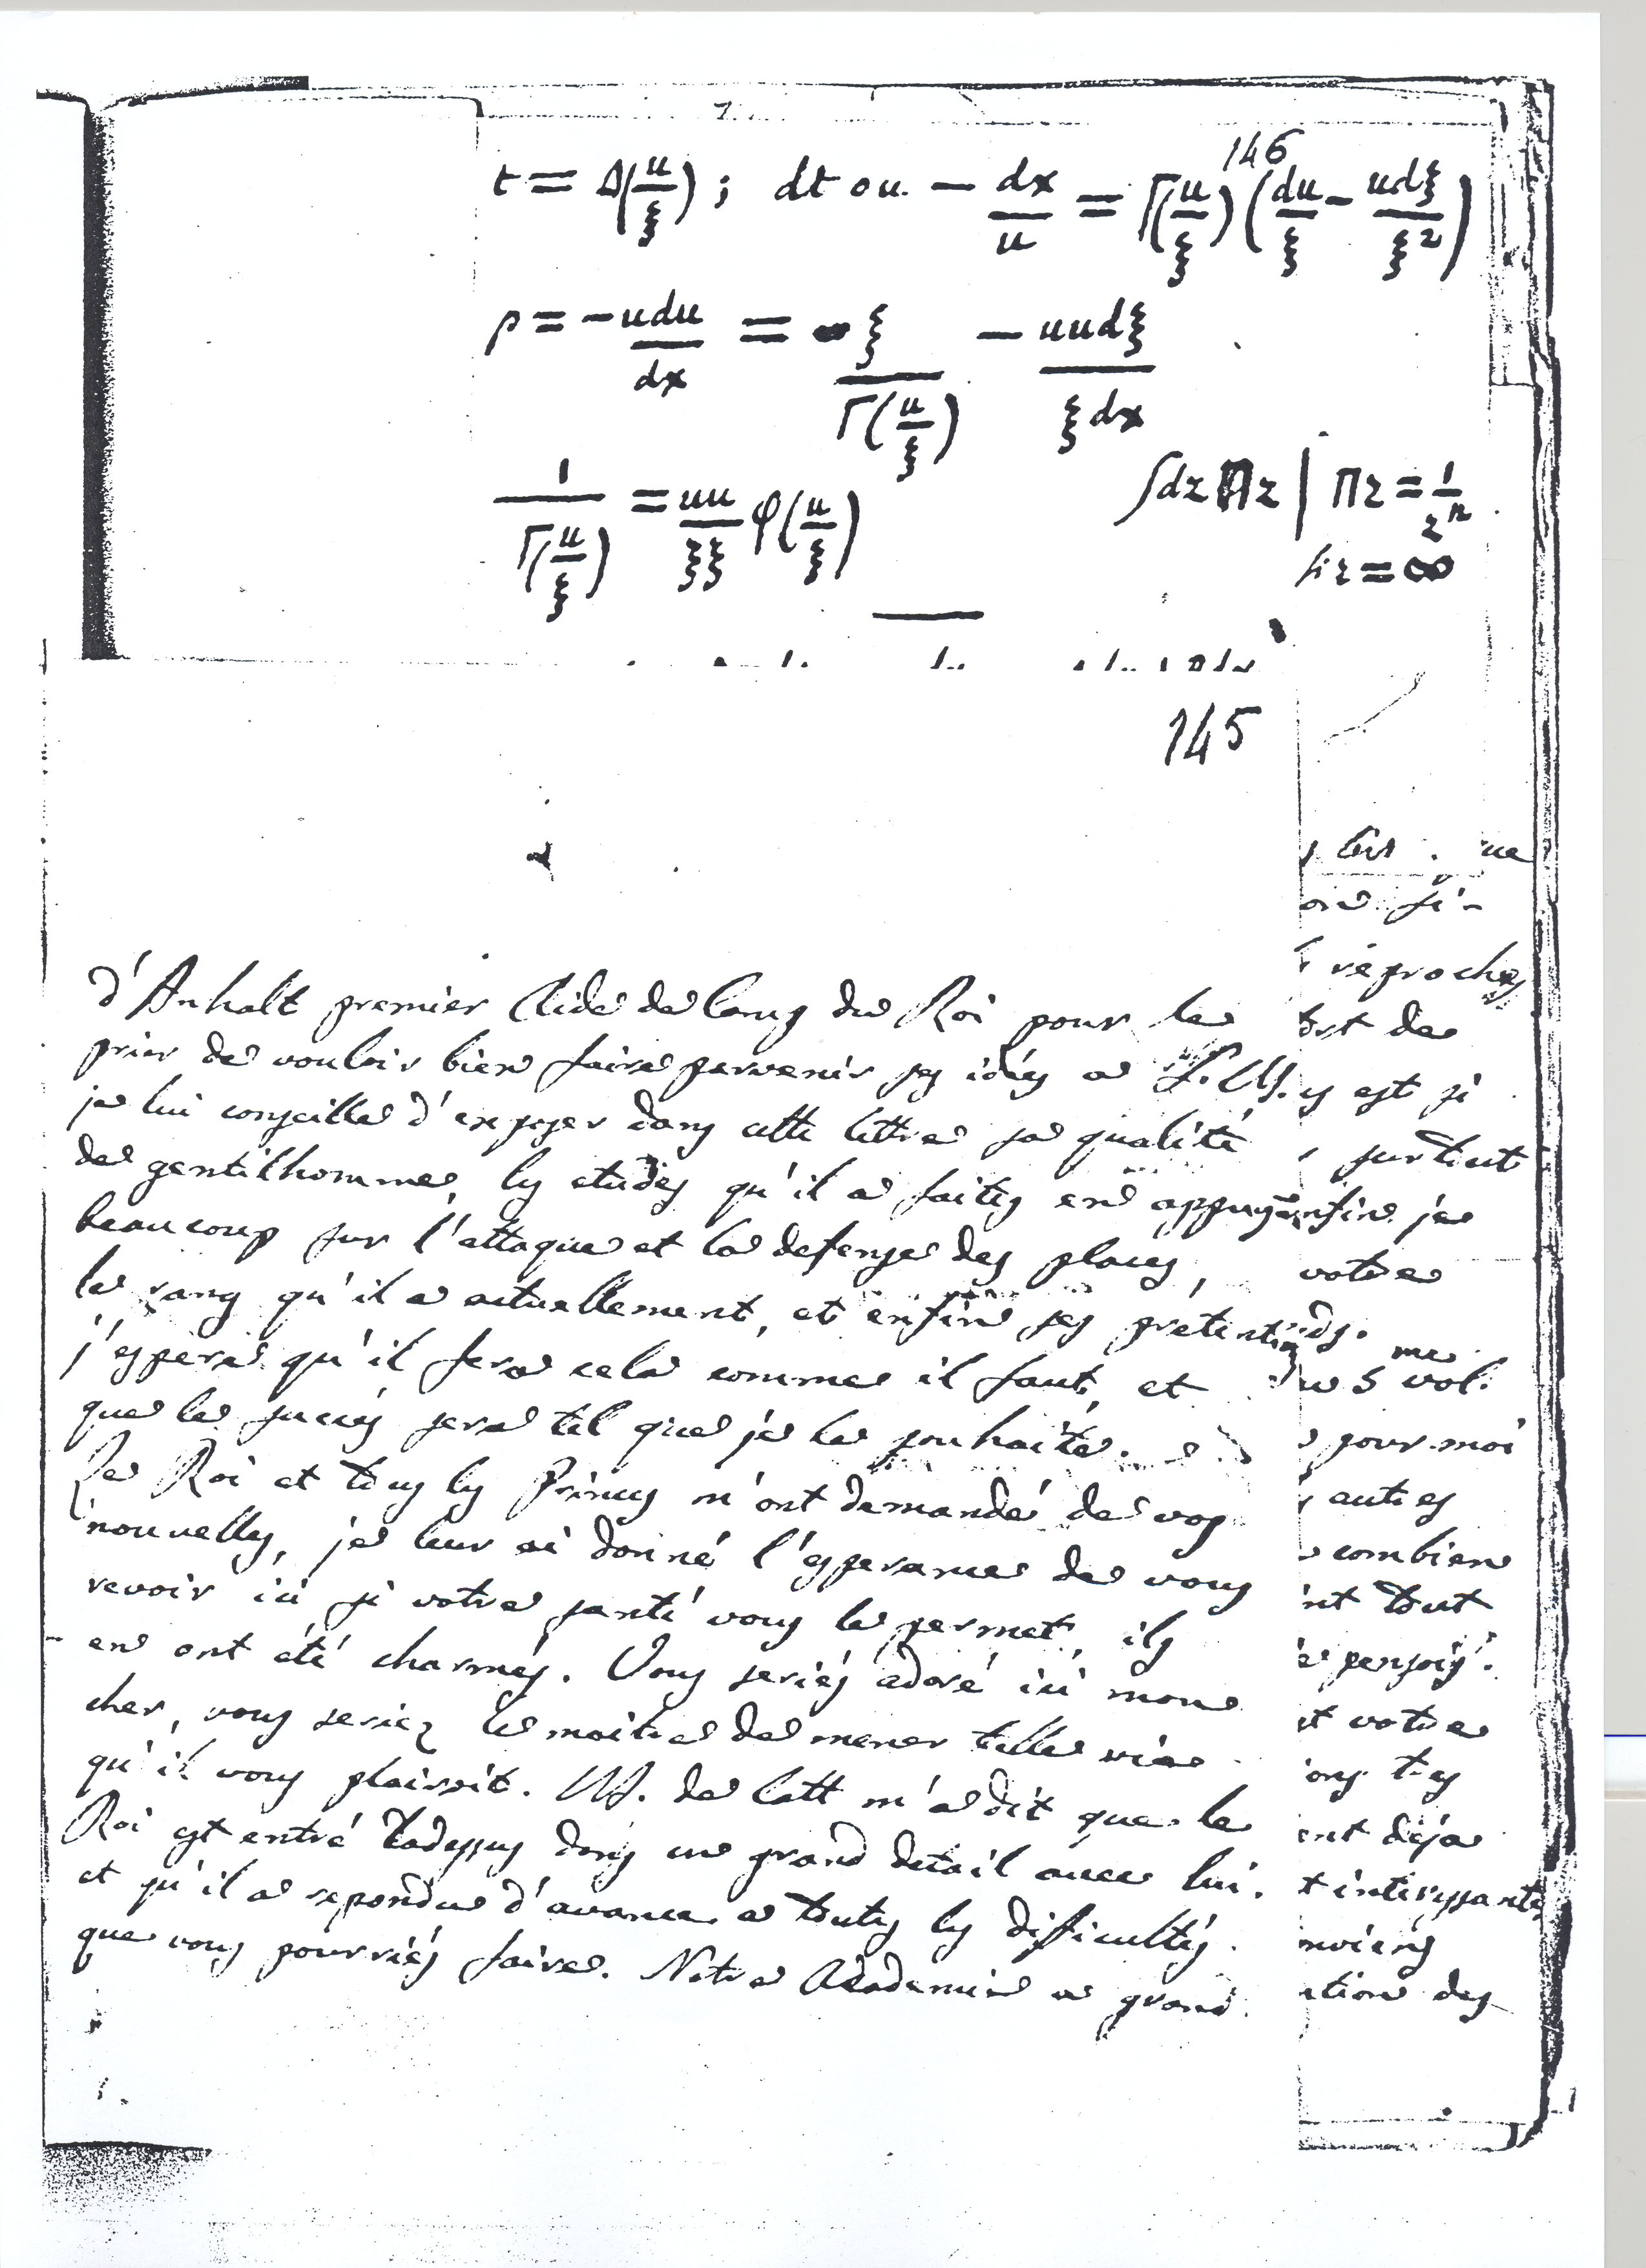 146
t = Δ(u/ξ) ; dt ou - dx/u = Γ(u/ξ) (du/ξ - udξ/ξ²)
p = - udu/dx = - ξ/Γ(u/ξ) - uudξ/ξdx
1/Γ(u/ξ) = uu/ξξ φ(u/ξ)
∫dz Πz | Πz = 1/zⁿ
si z = ∞
145
d'Anhalt premier Aide de Camp du Roi pour le
prier de vouloir bien faire parvenir ses idées a S. M.
je lui conseille d'exposer dans cette lettre sa qualité
de gentilhomme, les etudes qu'il a faites en appuyant
beaucoup sur l'attaque et la defense des places,
le rang qu'il a actuellement, et enfin ses pretentions
j'espere qu'il fera cela comme il faut, et
que le succés sera tel que je le souhaite.
Le Roi et tous les Princes m'ont demandé de vos
nouvelles, je leur ai donné l'esperance de vous
revoir ici si votre santé vous le permet, ils
en ont été charmés. Vous seriés adoré ici mon
cher, vous seriez le maitre de mener telle vie
qu'il vous plairoit. M. de Catt m'a dit que le
Roi est entré ladessus dans un grand detail avec lui.
et qu'il a repondu d'avance a toutes les difficultés
que vous pourriés faire. Notre Academie a grand
reproches
est si
surtout
enfin je
votre
me
5 vol.
pour moi
autres
combien
tout
votre
deja
interessante
des